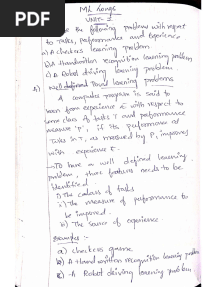 PDF
ML Longs
Unit- I
the following problems with respect
to Tasks, Performance and Experience
a) A checkers learning problem
b) A Handwritten recognition learning problem
c) A Robot driving learning problem.
A) Well defined learning problems
A computer program is said to
learn from experience E with respect to
some class of tasks T and performance
measure 'P', if its performance at
tasks in T, as measured by P, improves
with experience E.
→To have a well defined learning
problem, three features needs to be
Identified
i) The class of tasks
ii) The measure of performance to
be improved.
iii) The source of experience.
Examples :-
a) checkers game
b) A Handwritten recognition learning problem
c) A Robot driving learning problem